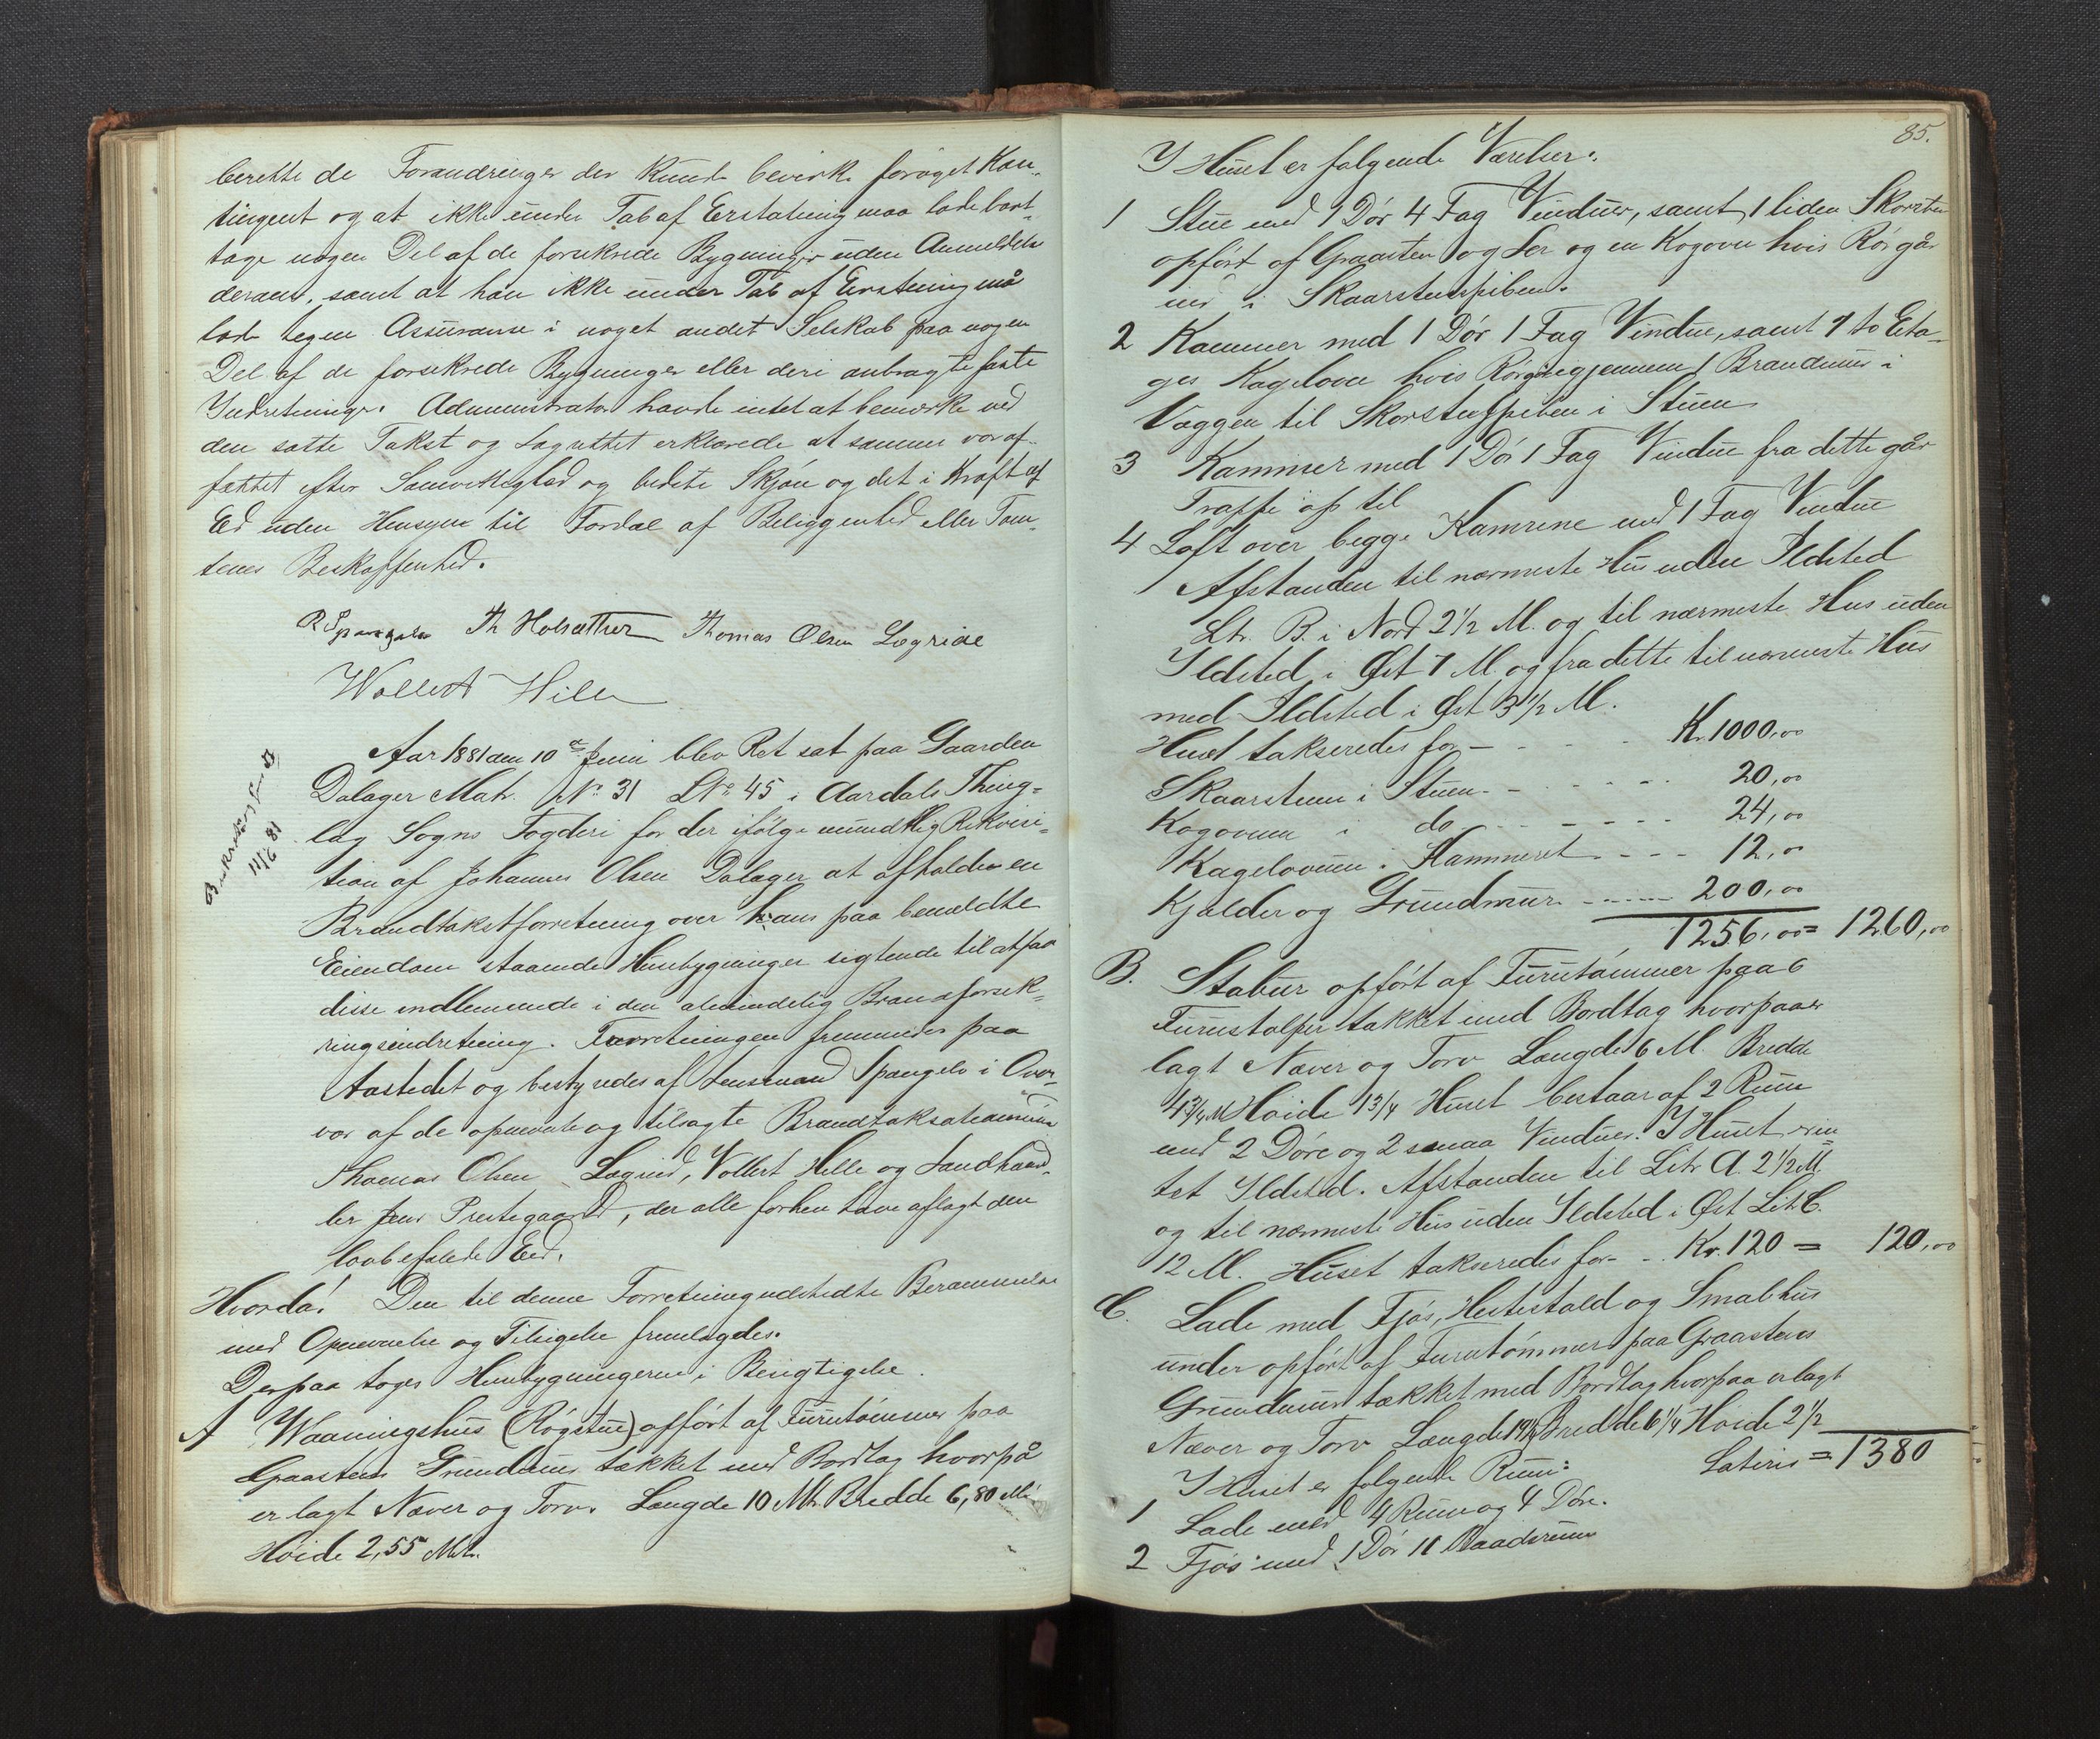 berette de Forandringer der kunde bevirke forøget Kon-
tingent og at ikke under Tab af Erstatning maa lade bort-
tage nogen Del af de forsikrede Bygninger uden Anmeldelse
deraf, samt at han ikke under Tab af Erstatning må
lade tegne Assurance i noget andet Selskab paa nogen
Del af de forsikrede Bygninger eller deri anbragte faste
Indretninger. Administrator havde intet at bemærke ved
den satte Takst og Lagrettet erklærede at samme var af-
fattet efter Samvittighed og bedste Skjøn og det i Kraft af
Ed uden Hensyn til Fordel af Beliggenhed eller Tom-
tens Beskaffenhed.
R Spangelo Th Holsæther Thomas Olsen Lægride
Wollert Hille
Aar 1881 den 10de Juni blev Ret sat paa Gaarden
Dalager Matr. No 31 LNo 45 i Aardals Thing-
lag Sogns Fogderi for der ifølge mundtlig Rekvisi-
tion af Johannes Olsen Dalager at afholde en
Brandtakstforretning over hans paa bemeldte
Eiendom staaende Husebygninger sigtende til at faa
disse indlemmede i den almindelig Brandforsik-
ringsindretning. Forretningen fremmedes paa
Aastedet og bestyredes af Lensmand Spangelo i Over-
vær af de opnævnte og tilsagte Brandtaksationsmænd
Thomas Olsen Lægrid, Vollert Hille og Landhand-
ler Jens Prestegaard, der alle forhen have aflagt den
lovbefalede Ed.
11/6 81
Hvorda! Den til denne Forretning udstedte Berammelse
med Opnævnelse og Tilsigelse fremlagdes.
Derpaa toges Husebygningerne i Besigtigelse.
A Waaningshus (Røgstue) opført af Furutømmer paa
Graasteens Grundmur tækket med Bordtag hvorpå
er lagt Næver og Torv. Længde 10 Mtr. Bredde 6,80 Mtr
Høide 2,55 Mtr.
85.
I Huset er følgende Værelser:
1 Stue med 1 Dør 4 Fag Vinduer, samt 1 liden Skorsten
opført af Graasten og Ler og en Kogovn hvis Rør går
ind i Skaarstenspiben.
2 Kammer med 1 Dør 1 Fag Vindue, samt 1 to Eta-
ges Kagelovn hvis Rør går igjennem 1 Brandmur i
Væggen til Skorstenspiben i Stuen
3 Kammer med 1 Dør 1 Fag Vindue fra dette går
Trappe op til
4 Loft over begge Kamrene med 1 Fag Vindue
Afstanden til nærmeste Hus uden Ildsted
Ltr. B. i Nord 2 1/2 M. og til nærmeste Hus uden
Ildsted i Øst 7 M. og fra dette til nærmeste Hus
med Ildsted i Øst 3 1/2 M.
Huset takseredes for - - - - Kr. 1000,00
Skaarstenen i Stuen - - - - - 20,00
Kogovnen i do - - - - - - 24,00
Kagelovnen i Kammeret - - - - 12,00
Kjælder og Grundmur - - - - 200,00
1256,00 = 1260,00
B. Stabur opført af Furutømmer paa 6
Furustolper tækket med Bordtag hvorpaa er
lagt Næver og Torv Længde 6 M. Bredde
4 3/4 M Høide 1 3/4 Huset bestaar af 2 Rum
med 2 Døre og 2 smaa Vinduer. I Huset er in-
tet Ildsted. Afstanden til Litr A. 2 1/2 M.
og til nærmeste Hus uden Ildsted i Øst Litr. C.
12 M. Huset takseredes for - . Kr. 120 = 120,00
C. Lade med Fjøs, Hestestald og Smalhus
under opført af Furutømmer paa Graastens
Grundmur tækket med Bordtag hvorpaa er lagt
Næver og Torv Længde 19 1/2 Bredde 6 1/4 Høide 2 1/2
I Huset er følgende Rum: Lateris = 1380
1 Lade med 4 Rum og 4 Døre.
2 Fjøs med 1 Dør 11 Baadsrum